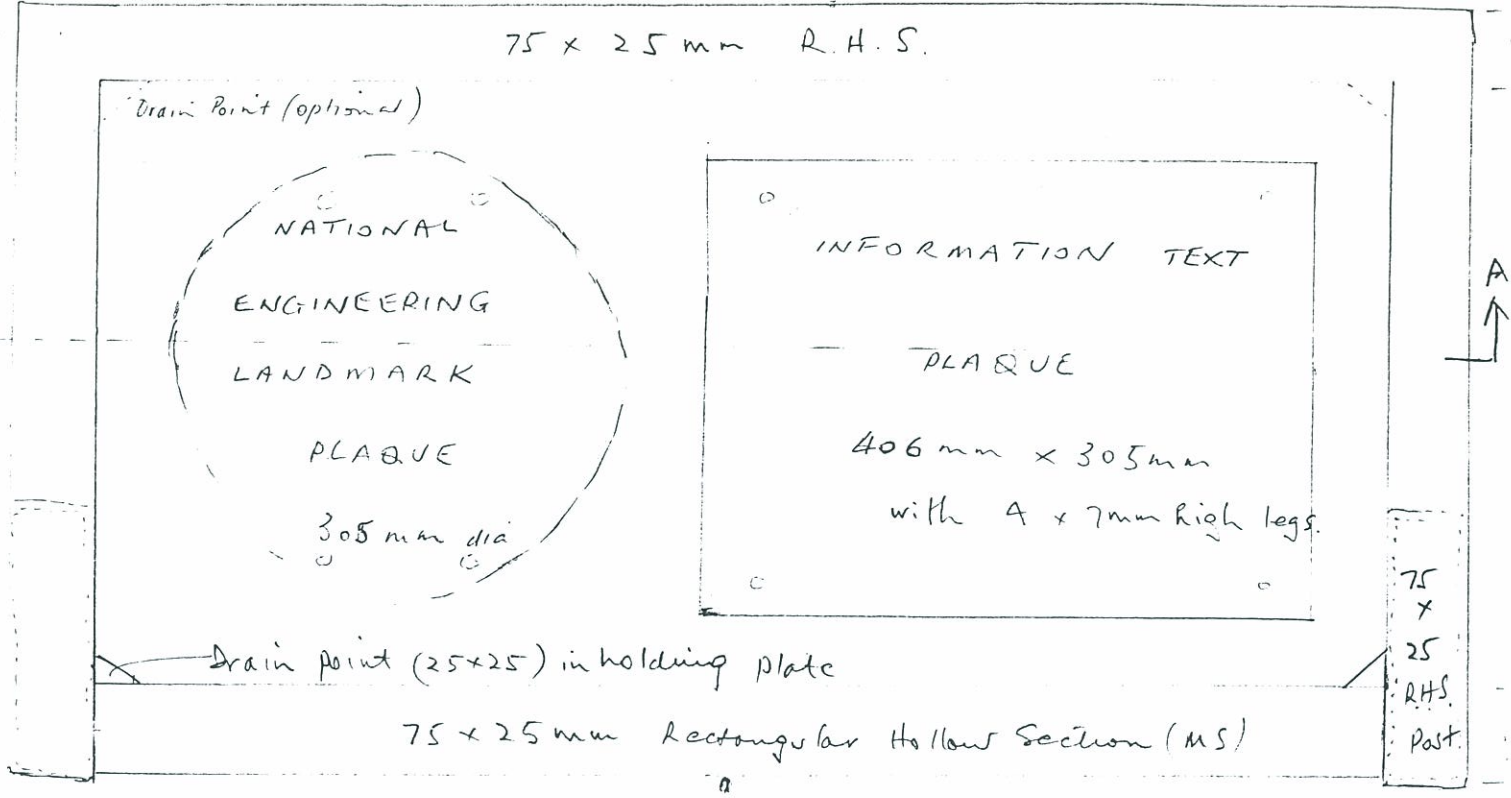 75 x 25 mm R.H.S.
Drain Point (optional)
NATIONAL
ENGINEERING
LANDMARK
PLAQUE
305 mm dia
INFORMATION TEXT
PLAQUE
406 mm x 305mm
with 4 x 7mm high legs.
A
75
x
25
RHS.
Post.
Drain point (25x25) in holding plate
75 x 25 mm Rectangular Hollow Section (MS)